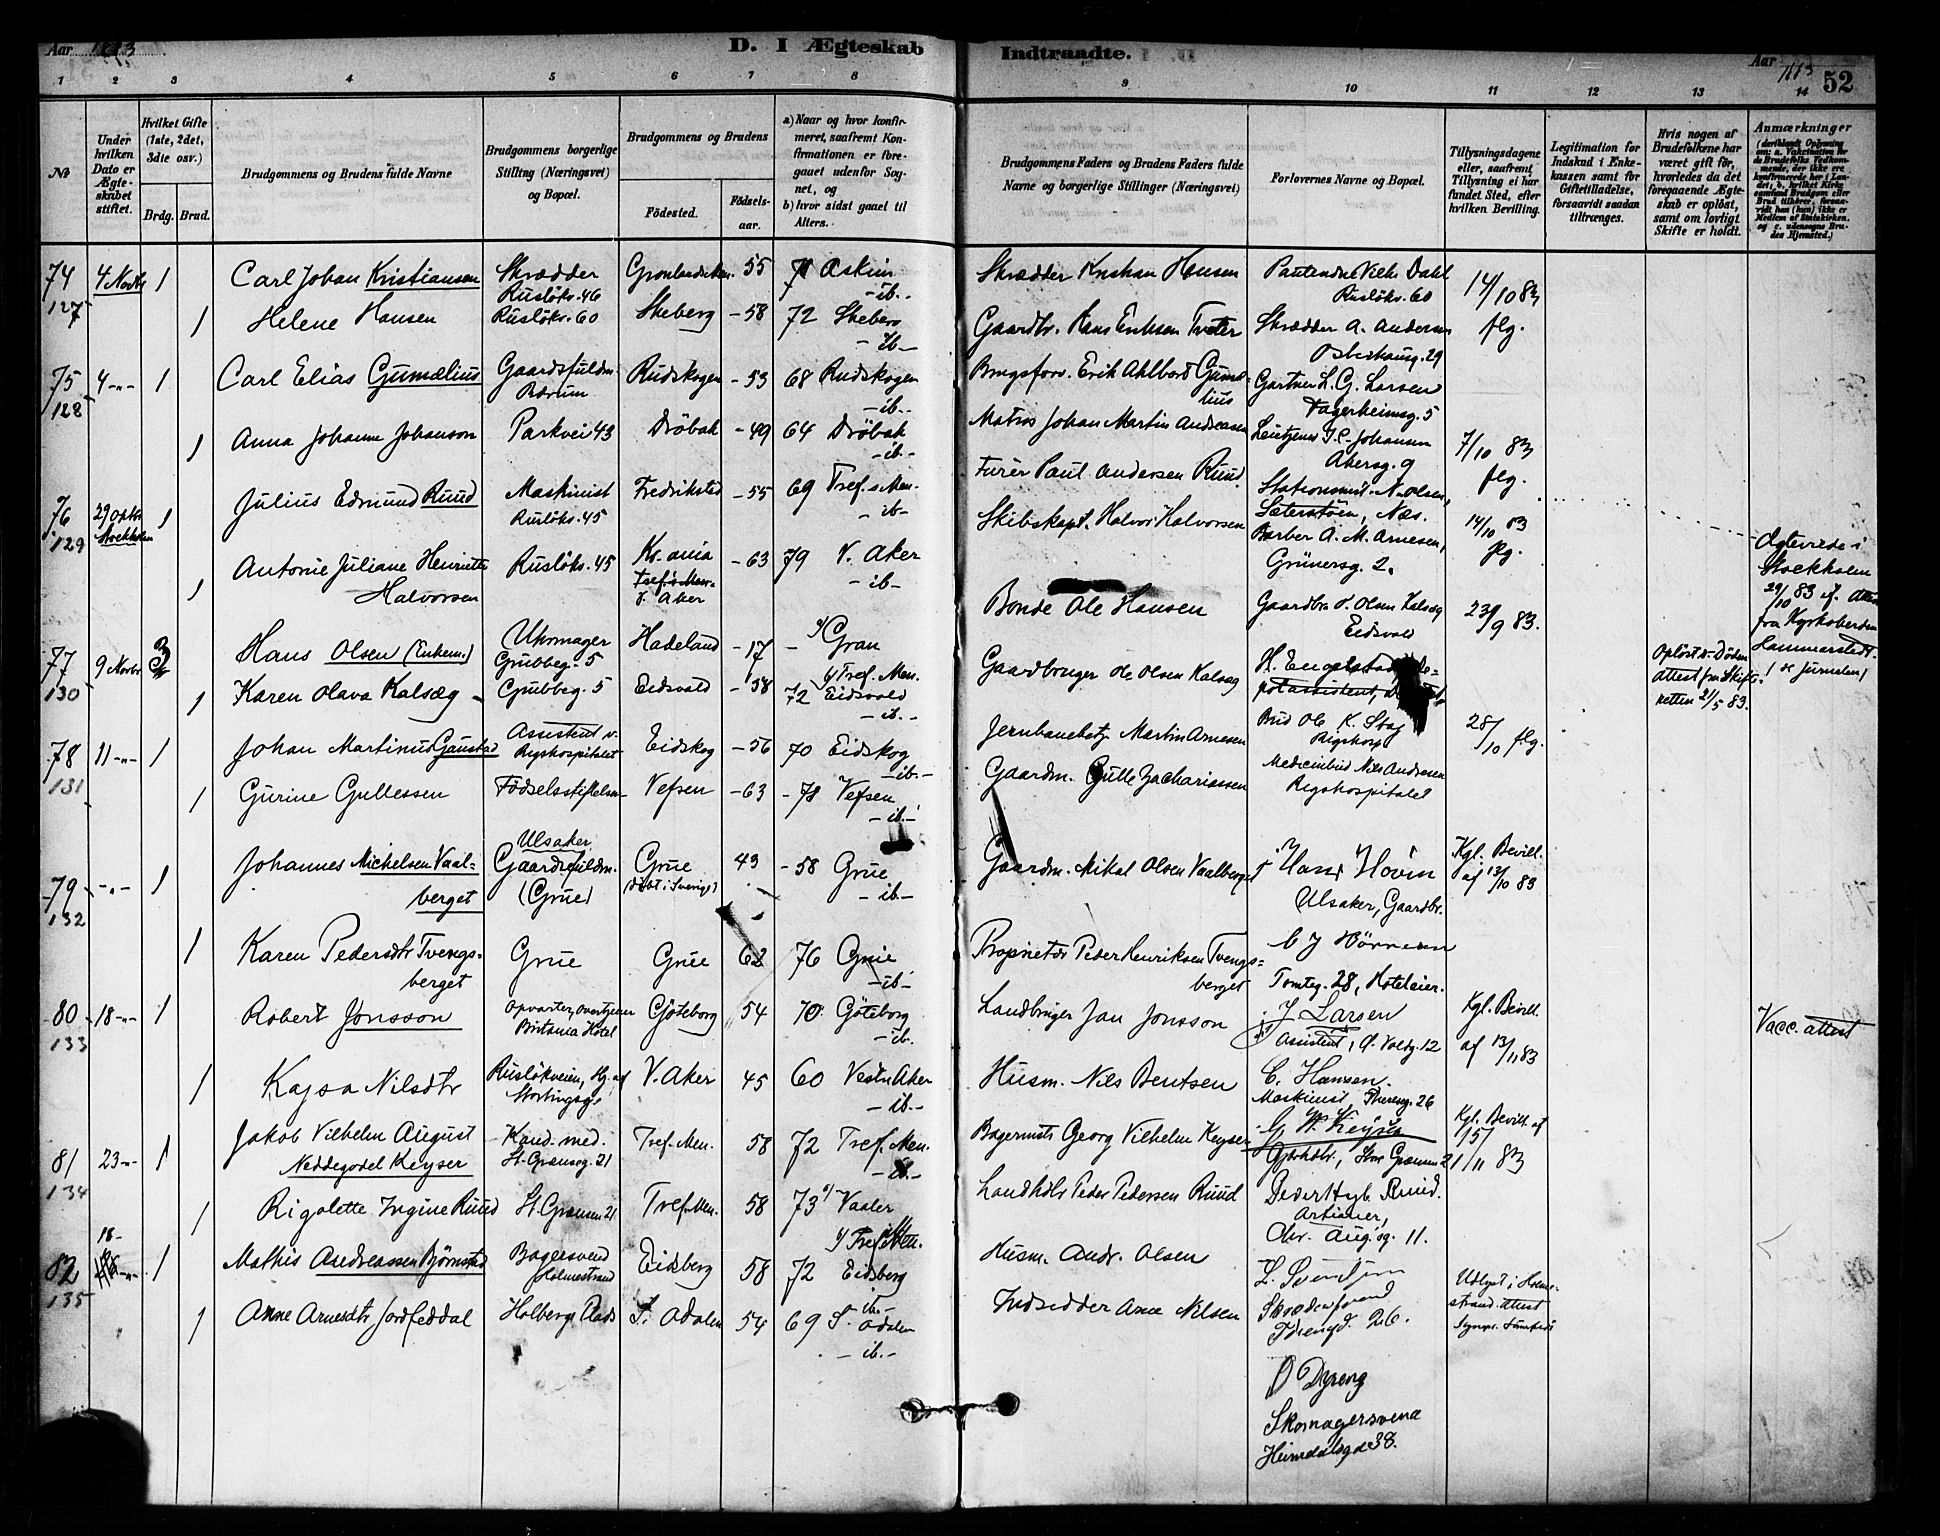 Aar 1883
D. I Ægteskab
Indtraadte.
Aar 1883
52
1 2 3 4 5 6 7 8 9 10 11 12 13 14
No
Under hvilken Dato er Ægteskabet stiftet.
Hvilket Gifte (1ste, 2det, 3die osv.)
Brdg. Brud.
Brudgommens og Brudens fulde Navne
Brudgommens borgerlige Stilling (Næringsvei) og Bopæl.
Brudgommens og Brudens
Fødested.
Fødselsaar.
a) Naar og hvor konfirmeret, saafremt Konfirmationen er foregaaet udenfor Sognet, og
b) hvor sidst gaaet til Alters.
Brudgommens Faders og Brudens Faders fulde Navne og borgerlige Stillinger (Næringsvei)
Forlovernes Navne og Bopæl.
Tillysningsdagene eller, saafremt Tillysning ei har fundet Sted, efter hvilken Bevilling.
Legitimation for Indskud i Enkekassen samt for Giftetilladelse, forsaavidt saadan tiltrænges.
Hvis nogen af Brudefolkene har været gift før, hvorledes da det foregaaende Ægteskab er opløst, samt om lovligt Skifte er holdt.
Anmærkninger
74 4 Novbr 1 Carl Johan Kristiansen Skrædder Rusløkv. 46 55 71 Askim -ib.- Skrædder Kristian Hansen Vilh. Dahl Rusløkv. 60 14/10 83
127 1 Helene Hansen Rusløkv. 60 Skeberg - 58 72 Skeberg -ib- Gaardbr. Hans Eriksen Tveter Skrædder A. Andersen Osterhausg. 29 flg.
75 4 -"- 1 Carl Elias Gumælius Gaardsfuldm. Bærum Rudskogen - 53 68 Rudskogen -ib.- Brugsforv. Erik Ahlbord Gumælius Gartner L. G. Larsen Fagerheimsg. 5
128 1 Anna Johanne Johanson Parkvei 43 Dröbak - 49 64 Dröbak -ib.- Matros Johan Martin Andreasen Johansen Akersg. 9 7/10 83 flg.
76 29 Oktbr Stockholm 1 Julius Edmund Ruud Maskinist Rusløkv. 45 Fredrikstad - 55 69 Tref. Men. -ib- Furér Paul Andersen Ruud Stationsmst. N. Olsen, Sæterstøen, Næs. 14/10 83 flg.
129 1 Antonie Juliane Henriette Halvorsen Rusløkv. 45 Kr.ania Tref. Men. V. Aker - 63 79 V. Aker -ib- Skibskapt. Halvor Halvorsen Barber A. M. Arnesen, Grünersg. 2.
Ægteviede i Stockholm 29/10 83 cf. Attest fra Kyrkoherden Hammerstedt
77 9 Novbr 3 Hans Olsen (Enkem.) Uhrmager Grubbeg. 5 Hadeland - 17 - Gran Tref. Men. Bonde Ole Hansen Gaardbr. O. Olsen Kalsæg Eidsvold 23/9 83.
130 1 Karen Olava Kalsæg Grubbeg. 5 Eidsvold - 58 72 Eidsvold -ib.- Gaardbruger Ole Olsen Kalsæg H. Engelstad
Opløst v. Døden attest fra Skifteretten 21/5 83.
78 11 -"- 1 Johan Martinus Gaustad Assistent v. Rigshospitalet Eidskog - 56 70 Eidskog -ib.- Martin Arnesen Bud Ole K. Stag Rigshosp. 28/10 flg.
131 1 Gurine Gullessen Fødselsstiftelsen Vefsen - 63 - 78 Vefsen -ib.- Gaardm. Gulle Zachariassen Medicinbud Nils Andresen Rigshospitalet
79 -"- 1 Johannes Michelsen Vaalberget Ulsaker Gaardsfuldm. (Grue) Grue (Døbt i Sverige) 43 - 58 Grue -ib- Gaardm. Mikal Olsen Vaalberget Hans Hovin Ulsaker, Gaardbr. Kgl. Bevill. af 13/10 83
132 1 Karen Pedersdtr Tvengsberget Grue Grue 62 76 Grue -ib- Proprietær Peder Henriksen Tvengsberget Tomteg. 28, Hoteleier.
80 18 -"- 1 Robert Jonsson Opvarter Britania Hotel Göteborg 54 70 Göteborg -ib. Landbruger Jan Jonsson J. Larsen Assistent, Ø. Voldg. 12 Kgl. Bevill. af 13/11 83 Vacc. attest
133 1 Kajsa Nilsdtr Rusløkveien, Hj. af Stortingsg. V. Aker 45 60 Vestre Aker -ib.- Husm. Nils Bentsen C. Hansen. Maskinist Theresg. 26
81 23 -"- 1 Jakob Vilhelm August Neddegodel Keyser Kand. med. St. Grænseg. 21 Tref. Men. 58 72 Tref. Men. -ib.- Bagermstr Georg Vilhelm Keyser G. W. Keyser Kgl. Bevill. af 15/11 83
134 1 Rigolette Ingine Ruud St. Grænsen 21 Tref. Men. 58 73 Vaaler Tref. Men. Landhdlr Peder Pedersen Ruud Peder Ruud. Chr. Aug. sg. 11.
82 18- 1 Mathis Andreassen Bjørnstad Bagersvend Holmestrand Eidsberg 58 72 Eidsberg -ib- Husm. Andr. Olsen L. Svendsen
135 1 Anne Arnesdtr Jordfeddal Holbergs Plads S. Odalen 54 69 S. Odalen -ib.- Indsidder Arne Nilsen 26. Udlyst i Holmestrand. Attest
O Dyreng
Skomagersvend
Heimdalsgd 38.